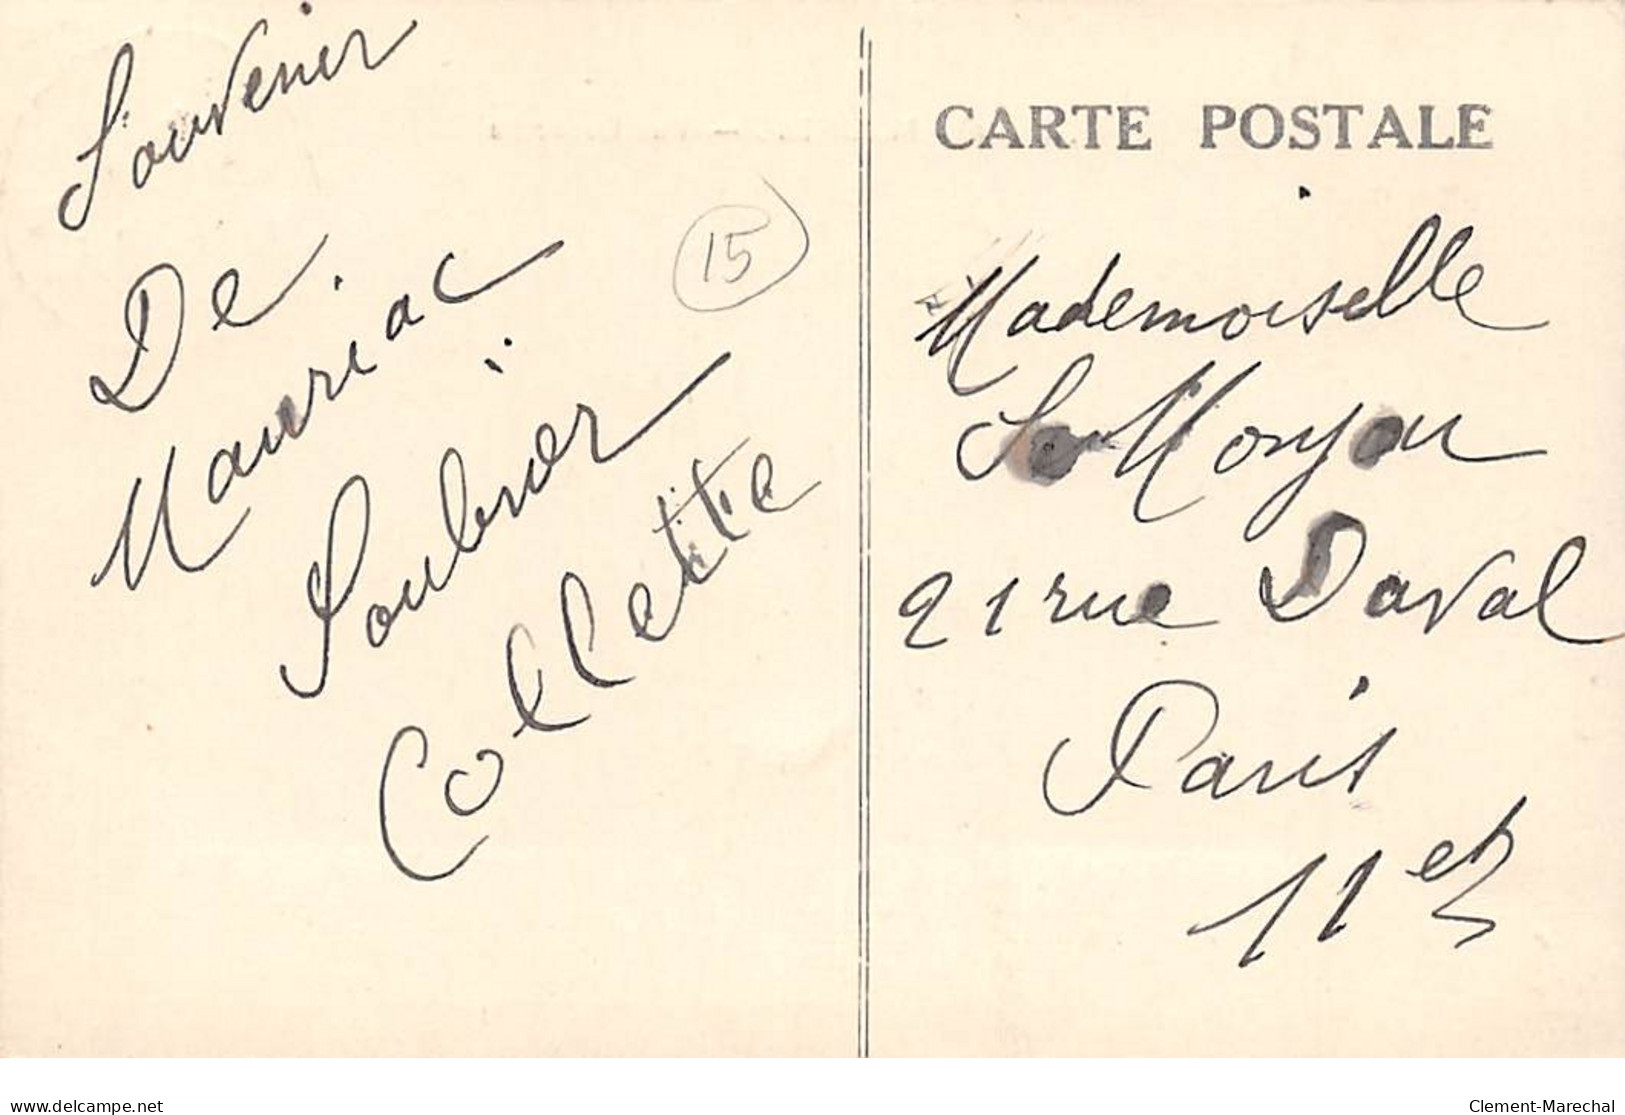 Souvenir
De
Mauriac
Soubrier
Collette
15
CARTE POSTALE
Mademoiselle
21 rue Daval
Paris
11e
delcampe.net
Clement-Marechal